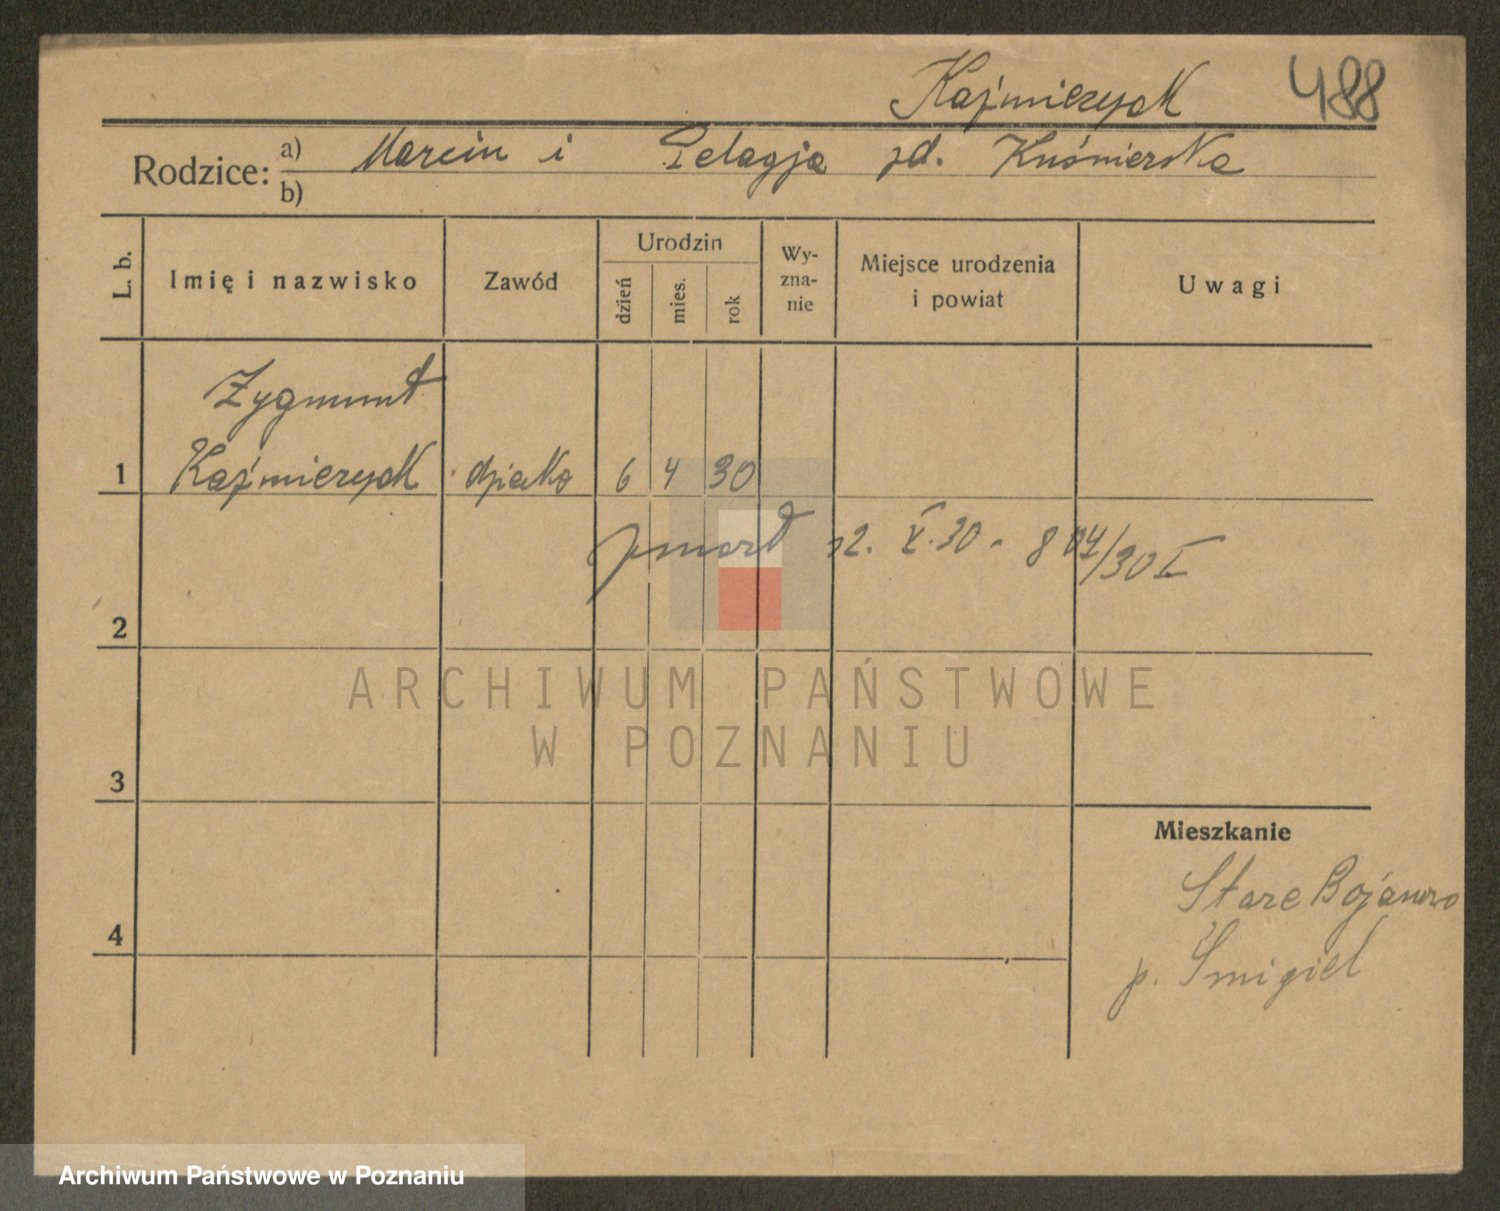 Kaźmierzak 488
Rodzice: a) Marcin i Pelagja zd. Kuśnierska
b)
L. b. Imię i nazwisko Zawód Urodzin dzień mies. rok Wy-zna-nie Miejsce urodzenia i powiat Uwagi
Zygmunt
1 Kaźmierzak dziecko 6 4 30
zmarł 12. V. 30. 804/30 I
2
ARCHIWUM PAŃSTWOWE
W POZNANIU
3
Mieszkanie
Stare Bojanowo
4
p. Śmigiel
Archiwum Państwowe w Poznaniu